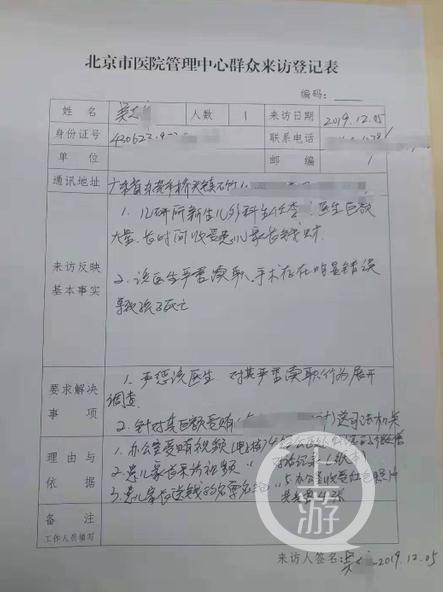 北京市医院管理中心群众来访登记表
编码：
姓名 吴 人数 1 来访日期 2019.12.05
身份证号 430623 联系电话
单位 邮编 /
通讯地址 广东省东莞市桥头镇石竹
来访反映
基本事实
1、儿研所新生儿外科主任李 医生巨额
大量、长时间收受患儿家长钱财.
2、该医生严重渎职、手术存在明显错误
导致孩子死亡
要求解决
事项
1、严惩该医生 对其严重渎职行为展开
调查.
2、针对其巨额受贿 送司法机关
理由与
依据
1、办公室受贿视频
2、患儿家长采访视频
3、患儿家长送钱的
5、办公室收受红包照片
共 4张
备注
工作人员填写
上游
来访人签名：吴 2019.12.05